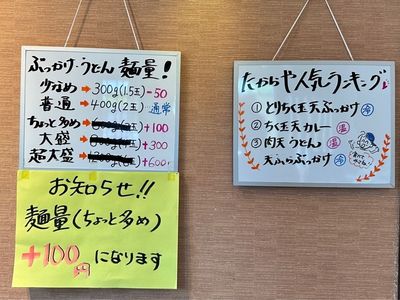 ぶっかけ・うどん 麺量!
少なめ➡300g(1.5玉)-50
普通➡400g(2玉) 通常
ちょっと多め➡ +100
大盛➡ +300
超大盛➡ +600
お知らせ!!
麺量(ちょっと多め)
+100円になります
たからや人気ランキング
① とりちく玉天ぶっかけ 冷
② ちく玉天カレー 温
③ 肉天うどん 温
天ぷらぶっかけ 冷